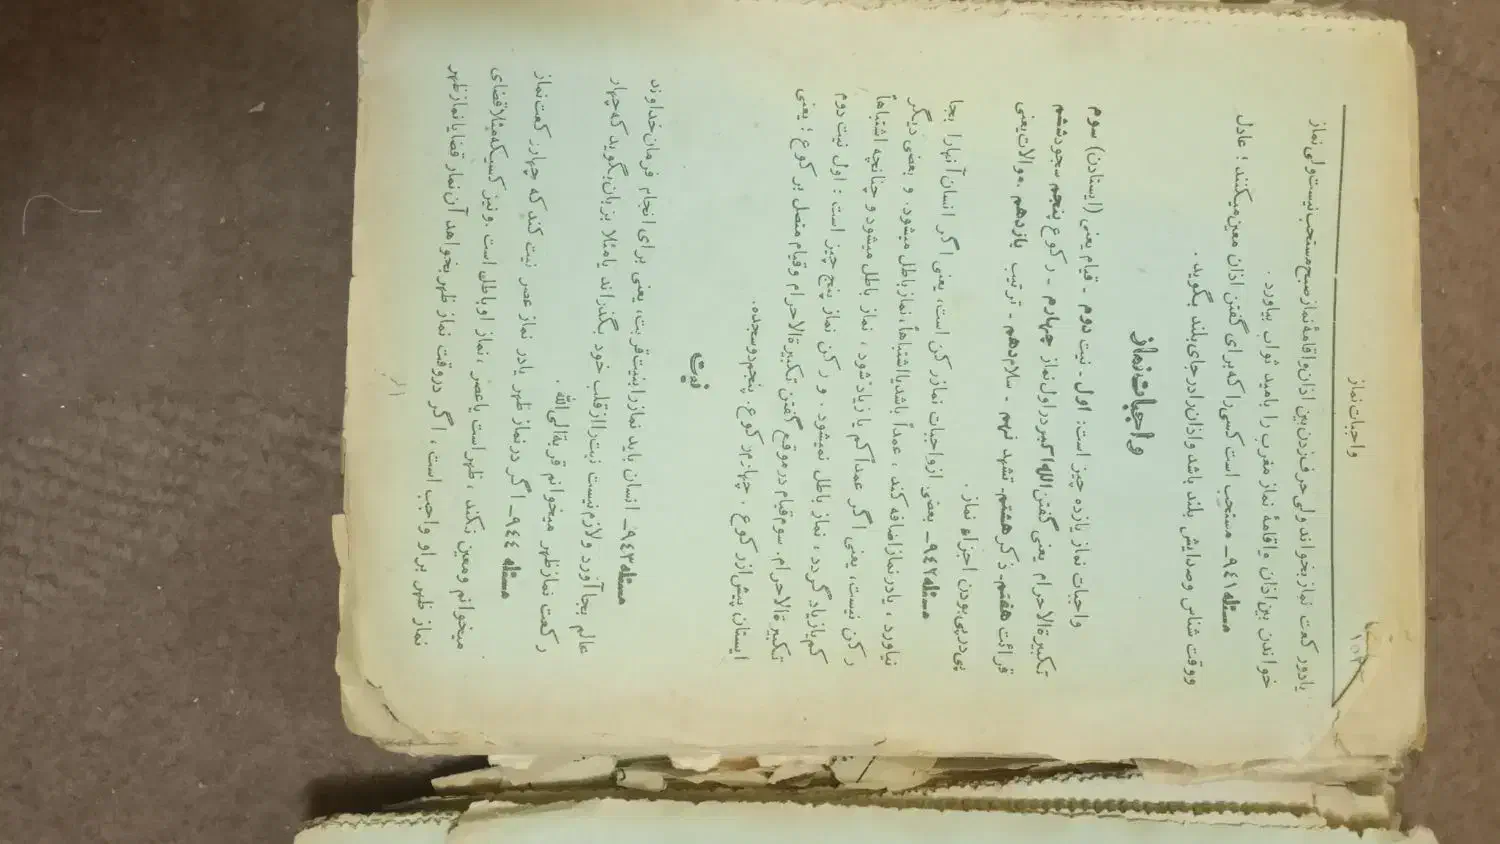 واجبات نماز
۱۵۳
یا دور کعت نماز بخواند ولی حرف زدن بین اذان و اقامهٔ نماز صبح مستحب نیست ولی نماز
خواندن بین اذان و اقامهٔ نماز مغرب را بامید ثواب بیاورد .
مسئله ۹۴۱ـ مستحب است کسی را که برای گفتن اذان معین میکنند ؛ عادل
ووقت شناس وصدایش بلند باشد واذان را در جای بلند بگوید .
واجبات نماز
واجبات نماز یازده چیز است: اول ـ نیت دوم ـ قیام یعنی (ایستادن) سوم
تکبیرة الاحرام یعنی گفتن الله اکبر در اول نماز چهارم ـ رکوع پنجم سجود ششم
قرائت هفتم ـ ذکر هشتم ـ تشهد نهم ـ سلام دهم ـ ترتیب یازدهم . موالات یعنی
پی در پی بودن اجزاء نماز .
مسئله ۹۴۲ـ بعضی از واجبات نماز رکن است، یعنی اگر انسان آنها را بجا
نیاورد ، یا در نماز اضافه کند ، عمداً باشد یا اشتباهاً ، نماز باطل میشود . و بعضی دیگر
رکن نیست، یعنی اگر عمداً کم یا زیاد شود ، نماز باطل میشود و چنانچه اشتباهاً
کم یا زیاد گردد ، نماز باطل نمیشود . و رکن نماز پنج چیز است : اول نیت دوم
تکبیرة الاحرام. سوم قیام در موقع گفتن تکبیرة الاحرام و قیام متصل بر کوع ؛ یعنی
ایستان پیش از رکوع . چهارم رکوع. پنجم دو سجده.
نیت
مسئله ۹۴۳ـ انسان باید نماز را بنیت قربت، یعنی برای انجام فرمان خداوند
عالم بجا آورد و لازم نیست نیت را از قلب خود بگذراند یا مثلا بزبان بگوید که چهار
رکعت نماز ظهر میخوانم قربة الی الله .
مسئله ۹۴۴ ـ اگر در نماز ظهر یا در نماز عصر نیت کند که چهار رکعت نماز
میخوانم و معین نکند ، ظهر است یا عصر ، نماز او باطل است . و نیز کسیکه مثلا قضای
نماز ظهر بر او واجب است ، اگر در وقت نماز ظهر بخواهد آن نماز قضا یا نماز ظهر